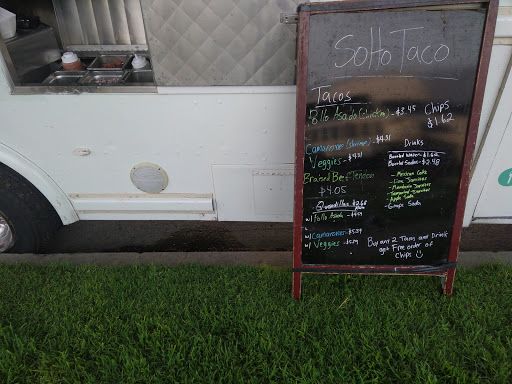 SoHo Taco
Tacos
Pollo Asado (chicken) - $3.45
Chips
$1.62
Camarones (shrimp) - $4.31
Veggies - $4.31
Braised Beef Tendon
$4.05
Drinks
Bottled Water - $1.62
Bottled Sodas - $2.48
- Mexican Coke
- Lime Jarritos
- Mandarin Jarritos
- Tamarind Jarritos
- Apple Soda
- Grape Soda
- Quesadillas $2.68
w/ Pollo Asada -
w/ Camarones - $5.39
w/ Veggies -
Buy any 2 Tacos and Drink
get Free order of
chips